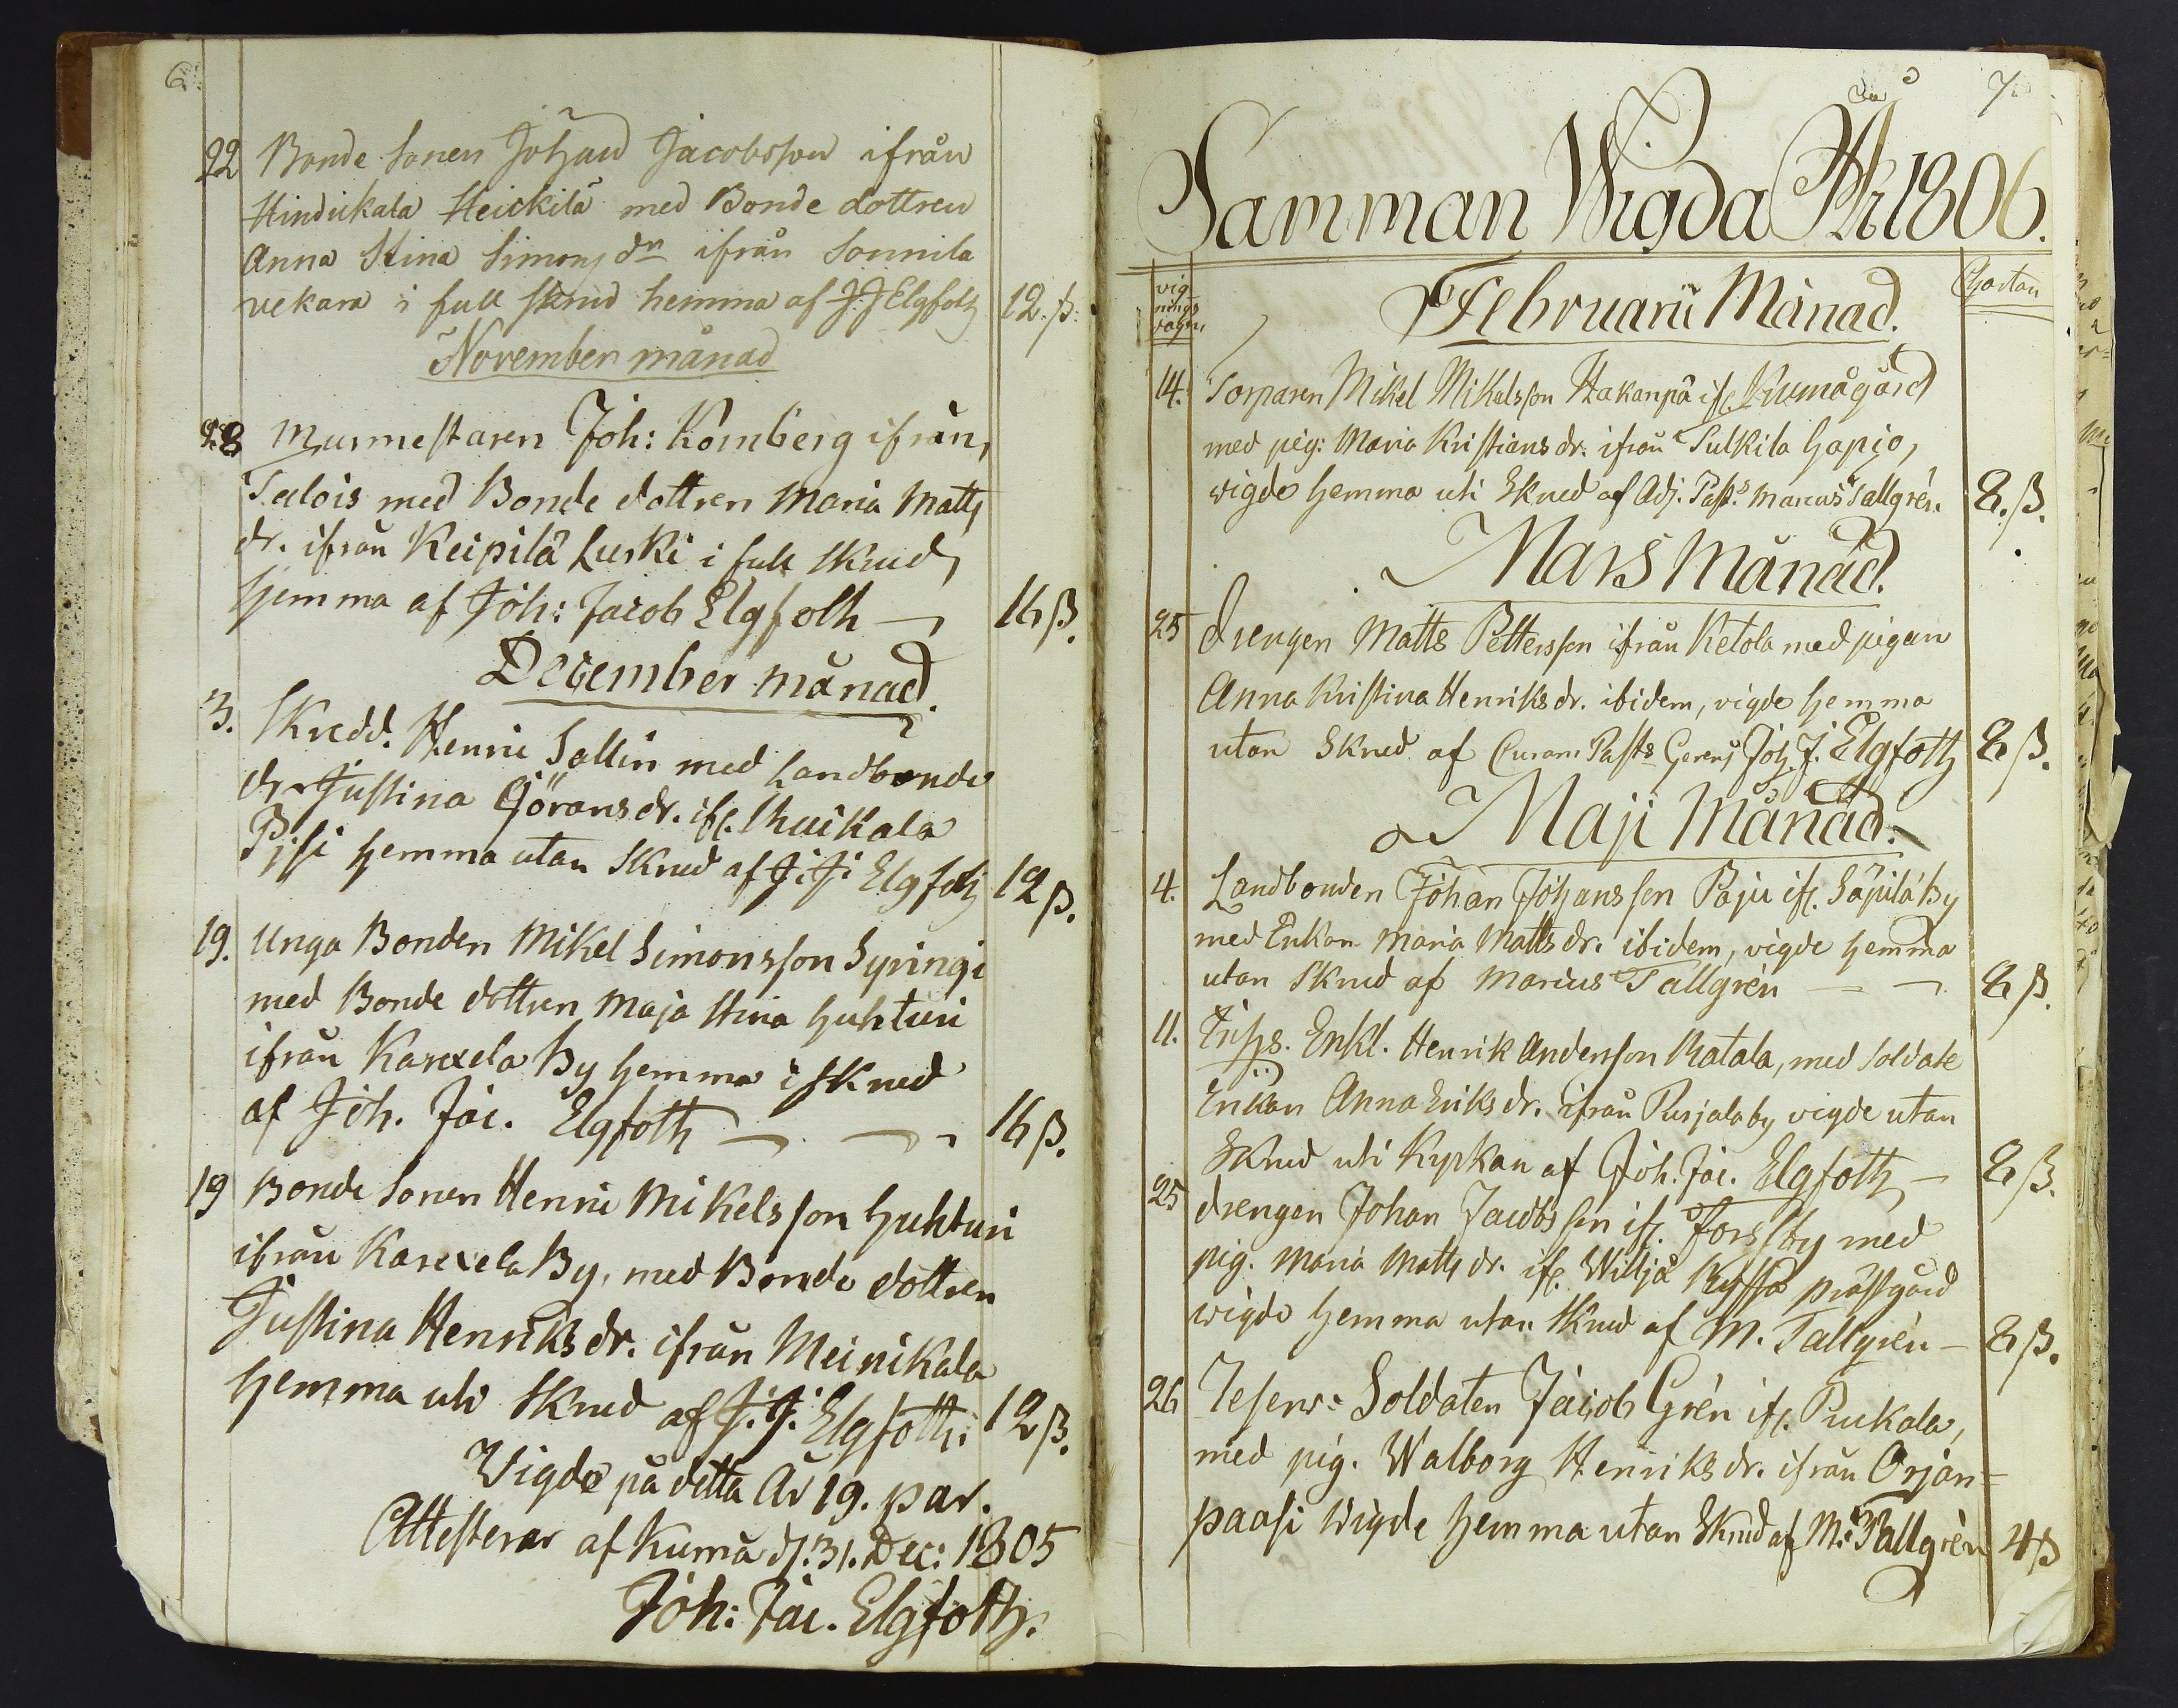 6.
22 Bonde Sonen Johan Jacobsson ifrån
Hindickala Heickilä med Bonde dottren
Anna Stina Simons dr ifrån Sonnila
vekara i full skrud hemma af J. J Elgfoth 12. ß.
November månad
28 Murmestaren Joh: Kornberg ifrån
Talois med Bonde dottren Maria Matts
dr. ifrån Keipilä Luski i full skrud
hemma af Joh: Jacob Elgfoth — 16 ß.
December månad.
3. Skredd. Henric Sallin med Landbonde
dr Justina Göransdr. ifr. Kuikala
Pysi hemma utan Skrud af J. J. Elgfoth 12 ß.
19. Unga Bonden Mikel Simonsson Syringi
med Bonde dottren Maja Stina Huhturi
ifrån Karxela By hemma i Skrud
af Joh. Jac. Elgfoth — 16 ß.
19 Bonde Sonen Henric Mikelsson Huhturi
ifrån Karxela By, med Bonde dottren
Justina Henriks dr. ifrån Meinikala
hemma uti Skrud af J. J. Elgfoth. 12 ß.
Vigde på detta År 19. par.
Attesterar af Kumå d. 31. Dec: 1805
Joh: Jac. Elgfoth.
7.
Samman Wigda År 1806.
vig-
nings
dagen
Februarii Månad.
14. Torparen Mikel Mikelsson Hakanpä ifr. Kumågård
med pig: Maria Kristians dr. ifrån Tulkila Hapio,
vigde hemma uti Skrud af Adj. Past: Marcus Tallgrén. 8. ß.
Mars Månad.
25 Drengen Matts Pettersson ifrån Ketola med pigan
Anna Kristina Henriks dr. ibidem, vigde hemma
utan Skrud af Curam Past: Gerens Joh. J. Elgfoth 8 ß.
Maji Månad.
4. Landbonden Johan Johansson Paju ifr. Säpilä By
med Enkan Maria Matts dr. ibidem, vigde hemma
utan Skrud af Marcus Tallgrén — 8 ß.
11. Enkl. Henrik Andersson Ratala, med Soldate
Enkan Anna Eriks dr. ifrån Purjala by vigde utan
Skrud uti Kyrkan af Joh. Jac. Elgfoth — 8 ß.
25 Drengen Johan Jacobsson ifr. Forssby med
pig. Maria Matts dr. ifr. Willjå prästgård
vigde hemma utan Skrud af M. Tallgrén — 8 ß.
26 Soldaten Jacob Grén ifr. Puckala,
med pig. Walborg Henriks dr. ifrån Orjan-
paasi Wigde hemma utan Skrud af M. Tallgrén 4 ß